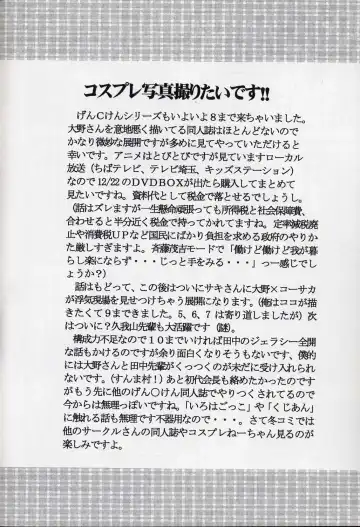 コスプレ写真撮りたいです!!
げんCけんシリーズもいよいよ8まで来ちゃいました。
大野さんを意地悪く描いてる同人誌はほとんどないので
かなり微妙な展開ですが多めに見てやっていただけると
幸いです。アニメはとびとびですが見ていますローカル
放送（ちばテレビ、テレビ埼玉、キッズステーション）
なので12/22のDVDBOXが出たら購入してまとめて
見たいですね。資料代として税金で落とせるでしょうし。
（話はズレますが一生懸命頑張っても所得税と社会保障費、
合わせると半分近く税金で持ってかれてますね。定率減税廃
止や消費税UPなど国民にばかり負担を求める政府のやりか
た厳しすぎますよ。斉藤茂吉モードで「働けど働けど我が暮
らし楽にならず・・・じっと手をみる・・・」っー感じでし
ょうか？）
話はもどって、この後はついにサキさんに大野×コーサカ
が浮気現場を見せつけちゃう展開になります。（俺はココが描
きたくて9まできました。5、6、7は寄り道しましたが）次
はついに？久我山先輩も大活躍です（謎）。
構成力不足なので10までいければ田中のジェラシー全開
な話もかけるのですが余り面白くなりそうもないです、僕的
には大野さんと田中先輩がくっつくのが未だに受け入れられ
ないです。（すんま村！）あと初代会長も絡めたかったのです
がもう先に他のげん〇けん同人誌でやりつくされてるので
今からは無理っぽいですね。「いろはごっこ」や「くじあん」
に触れる話も無理です不器用なので・・・。さて冬コミでは
他のサークルさんの同人誌やコスプレねーちゃん見るのが
楽しみですよ。